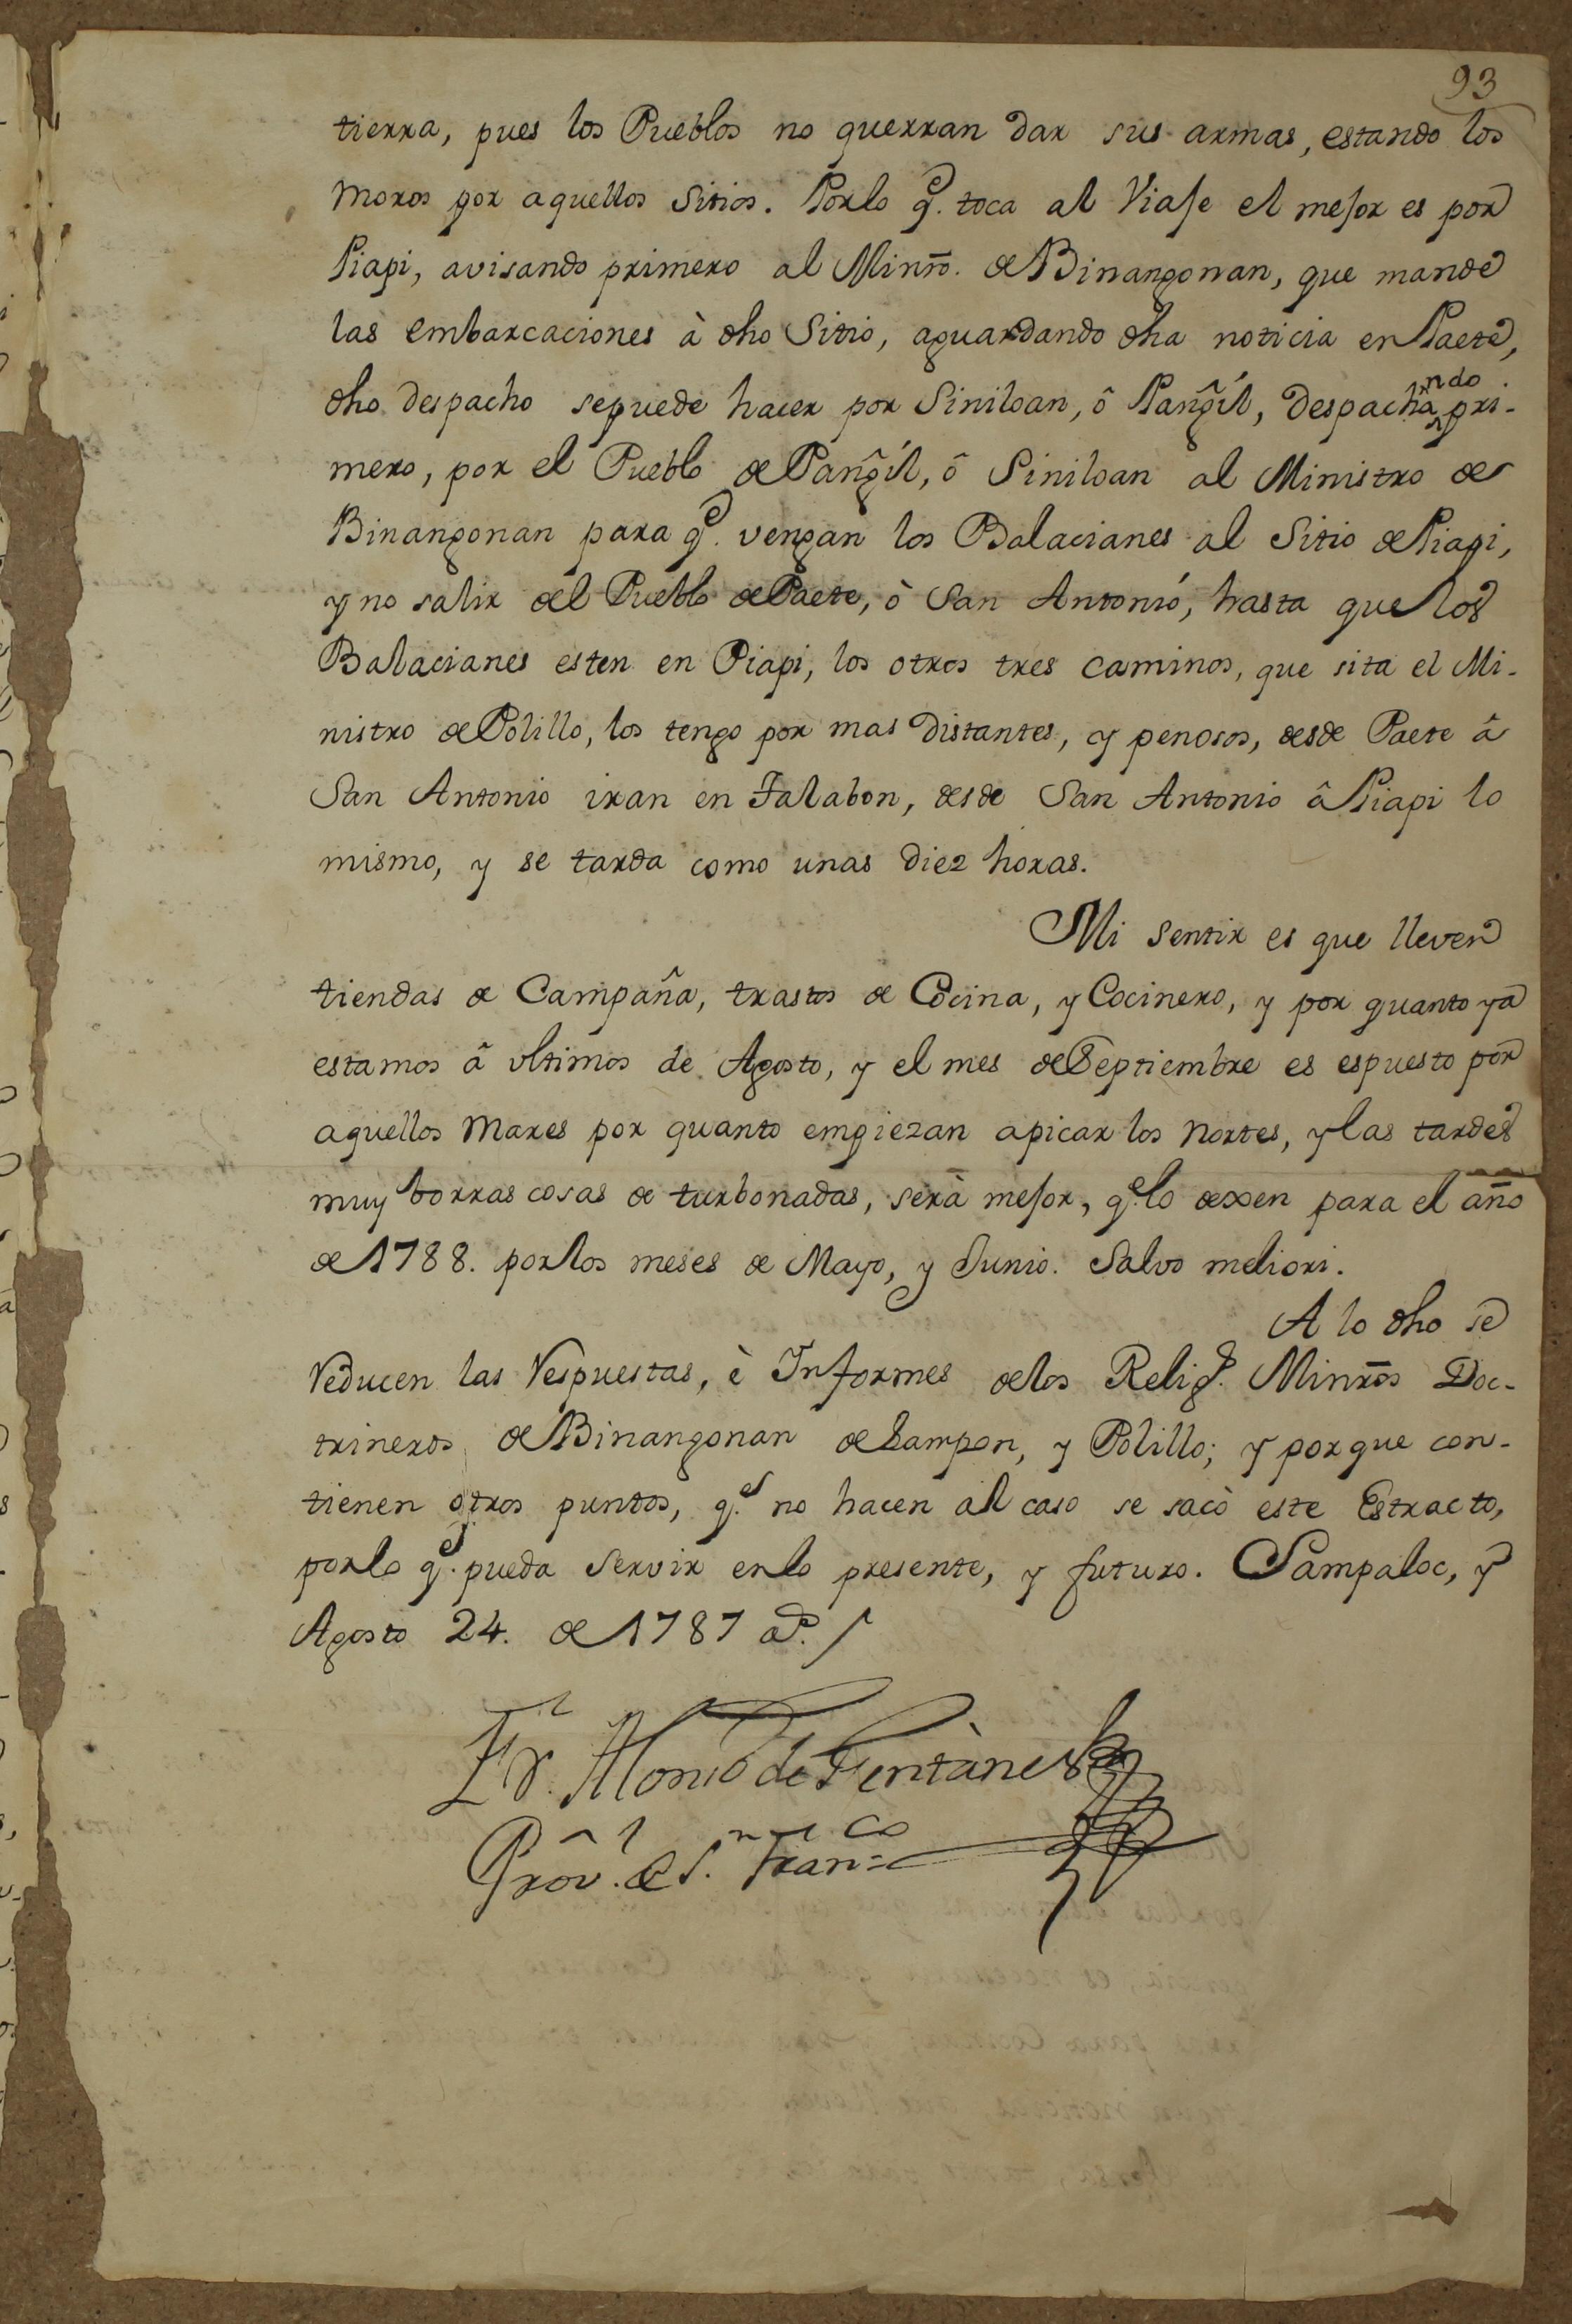 93
tierra, pues los Pueblos no querran dar sus armas, estando los
Moros por aquellos Sitios. Porlo q.e toca al Viaje el mejor es por
Piapi, avisando primero al Minrō. de Binangonan, que mande
las embarcaciones à dho Sitio, aguardando dha noticia en Paete,
dho despacho sepuede hacer por Siniloan, ô Pang̃il, despachando pri-
mero, por el Pueblo de Pang̃il, ô Siniloan al Ministro de
Binangonan para q.e vengan los Balacianes al Sitio de Piapi,
y no salir del Pueblo de Paete, ò San Antonio, hasta que los
Balacianes esten en Piapi, los otros tres caminos, que sita el Mi-
nistro de Polillo, los tengo por mas distantes, y penosos, desde Paete â
San Antonio iran en Falabon, desde San Antonio â Piapi lo
mismo, y se tarda como unas diez horas.
Mi sentir es que lleven
tiendas de Campaña, trastos de Cocina, y Cocinero, y por quanto ya
estamos â vltimos de Agosto, y el mes de Septiembre es espuesto por
aquellos Mares por quanto empiezan apicar los Nortes, y las tardes
muy borrascosas de turbonadas, serà mejor, q.e lo dexen para el año
de 1788. por los meses de Mayo, y Junio. Salvo meliori.
A lo dho se
reducen las respuestas, è Informes delos Relig.s Minrōs Doc-
trineros de Binangonan de Lampon, y Polillo; y porque con-
tienen otros puntos, q.e no hacen al caso se sacò este Estracto,
porlo q.e pueda servir enlo presente, y futuro. Sampaloc, y
Agosto 24. de 1787 a.s
Fr. Alonso de Fentànes
Prov.l de S.n Fran.co